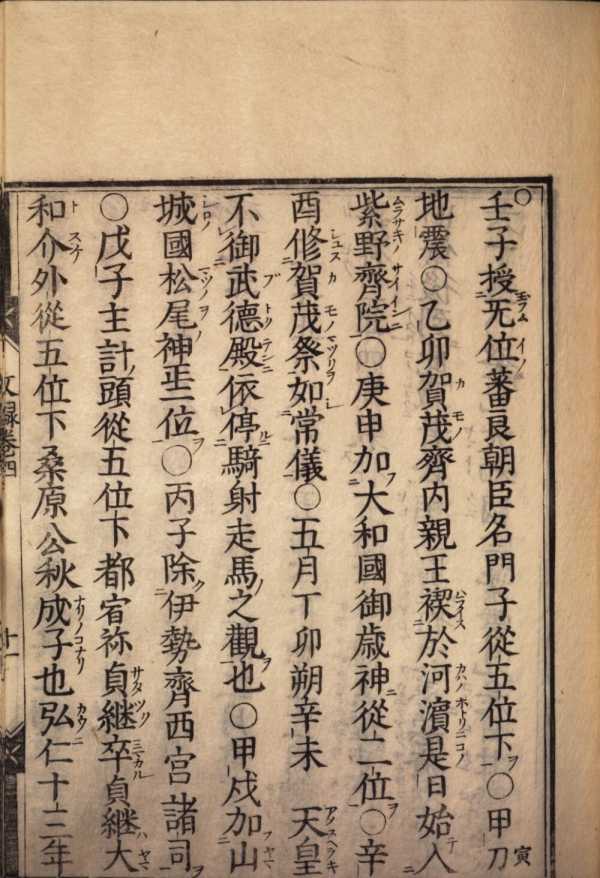 ○壬子授无位蕃良朝臣名門子從五位下○甲刀寅
地震○乙卯賀茂齊内親王禊於河濱是日始入
紫野齊院○庚申加大和國御歳神從二位○辛
酉修賀茂祭如常儀○五月丁卯朔辛未 天皇
不御武德殿依停騎射走馬之觀也○甲戌加山
城國松尾神正二位○丙子除伊勢齊西宮諸司
○戊子主計頭從五位下都宿祢貞継卒貞継大
和介外從五位下桑原公秋成子也弘仁十三年
文録卷四
十一